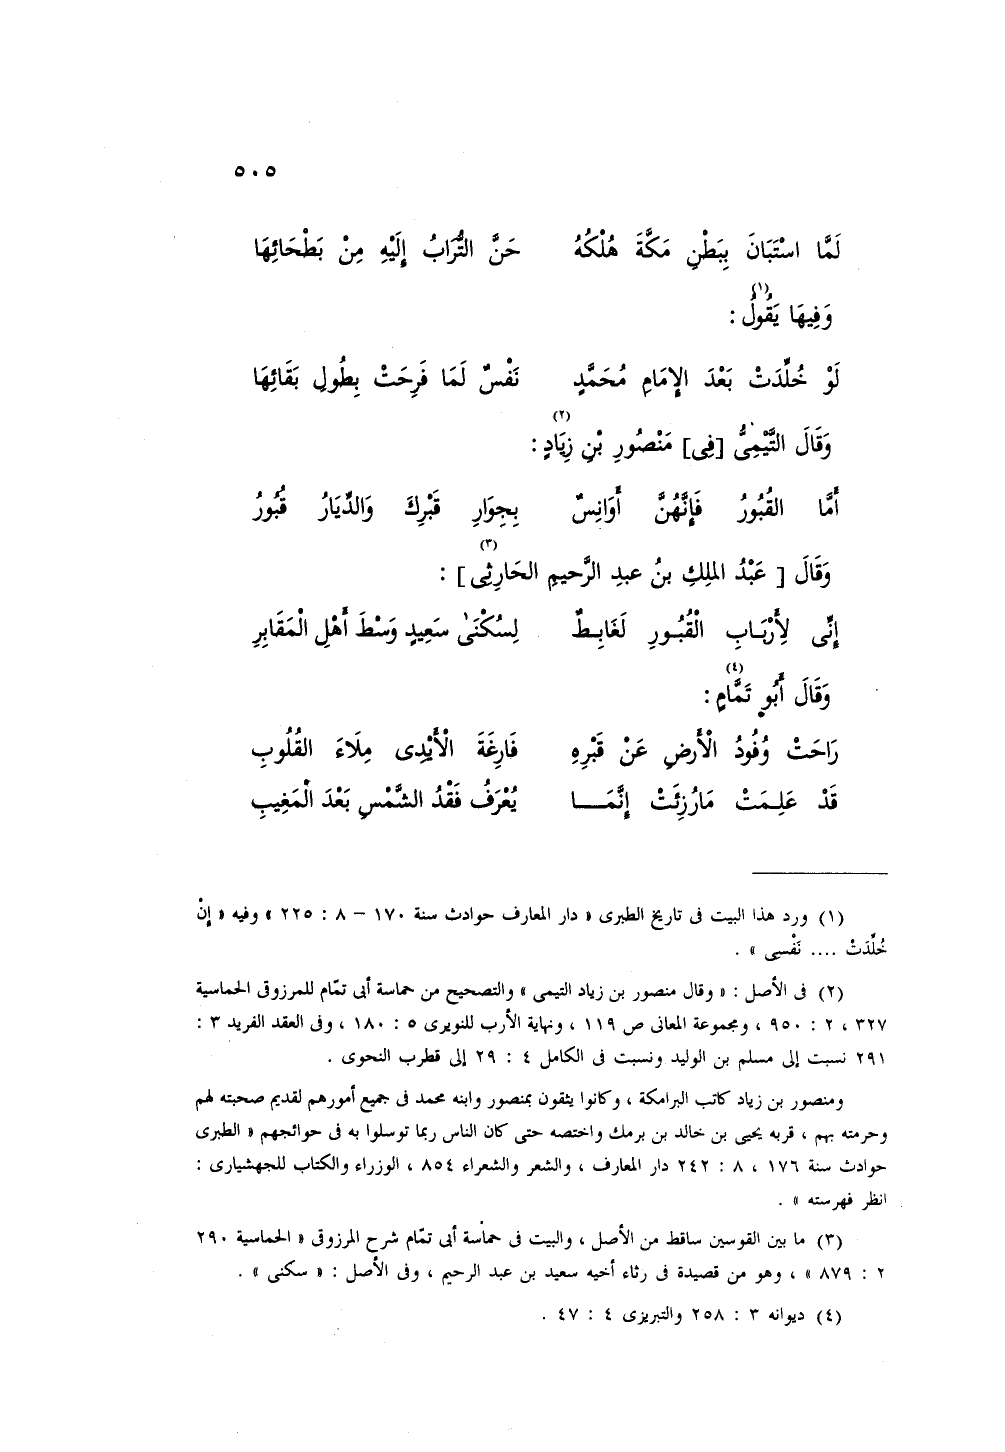 ٥٠٥
لَمَّا اسْتَبَانَ بِبَطْنِ مَكَّةَ هُلْكُهُ حَنَّ التُّرَابُ إِلَيْهِ مِنْ بَطْحَائِهَا
وَفِيهَا يَقُولُ (١) :
لَوْ خُلِّدَتْ بَعْدَ الإِمَامِ مُحَمَّدٍ نَفْسٌ لَمَا فَرِحَتْ بِطُولِ بَقَائِهَا
وَقَالَ التَّيْمِىُّ [فِى] مَنْصُورِ بْنِ زِيَادٍ (٢) :
أَمَّا القُبُورُ فَإِنَّهُنَّ أَوَانِسٌ بِجِوَارِ قَبْرِكَ وَالدِّيَارُ قُبُورُ
وَقَالَ [ عَبْدُ الملِكِ بنُ عبدِ الرَّحيمِ الحَارِثِى ] (٣) :
إِنِّى لِأَرْبَابِ الْقُبُورِ لَغَابِطٌ لِسُكْنَىٰ سَعِيدٍ وَسْطَ أَهْلِ الْمَقَابِرِ
وَقَالَ أَبُو تَمَّامٍ (٤) :
رَاحَتْ وُفُودُ الْأَرضِ عَنْ قَبْرِهِ فَارِغَةَ الْأَيْدِى مِلَاءَ القُلُوبِ
قَدْ عَلِمَتْ مَارُزِئَتْ إِنَّمَا يُعْرَفُ فَقْدُ الشَّمْسِ بَعْدَ الْمَغِيبِ
(١) ورد هذا البيت فى تاريخ الطبرى « دار المعارف حوادث سنة ١٧٠ – ٨ : ٢٢٥ » وفيه « إنْ
خُلِّدَتْ .... نَفْسِى » .
(٢) فى الأصل : « وقال منصور بن زياد التيمى » والتصحيح من حماسة أبى تمّام للمرزوق الحماسية
٣٢٧ ، ٢ : ٩٥٠ ، ومجموعة المعانى ص ١١٩ ، ونهاية الأرب للنويرى ٥ : ١٨٠ ، وفى العقد الفريد ٣ :
٢٩١ نسبت إلى مسلم بن الوليد ونسبت فى الكامل ٤ : ٢٩ إلى قطرب النحوى .
ومنصور بن زياد كاتب البرامكة ، وكانوا يثقون بمنصور وابنه محمد فى جميع أمورهم لقديم صحبته لهم
وحرمته بهم ، قربه يحيى بن خالد بن برمك واختصه حتى كان الناس ربما توسلوا به فى حوائجهم « الطبرى
حوادث سنة ١٧٦ ، ٨ : ٢٤٢ دار المعارف ، والشعر والشعراء ٨٥٤ ، الوزراء والكتاب للجهشيارى :
انظر فهرسته » .
(٣) ما بين القوسين ساقط من الأصل ، والبيت فى حماسة أبى تمّام شرح المرزوق « الحماسية ٢٩٠
٢ : ٨٧٩ » ، وهو من قصيدة فى رثاء أخيه سعيد بن عبد الرحيم ، وفى الأصل : « سكنى » .
(٤) ديوانه ٣ : ٢٥٨ والتبريزى ٤ : ٤٧ .